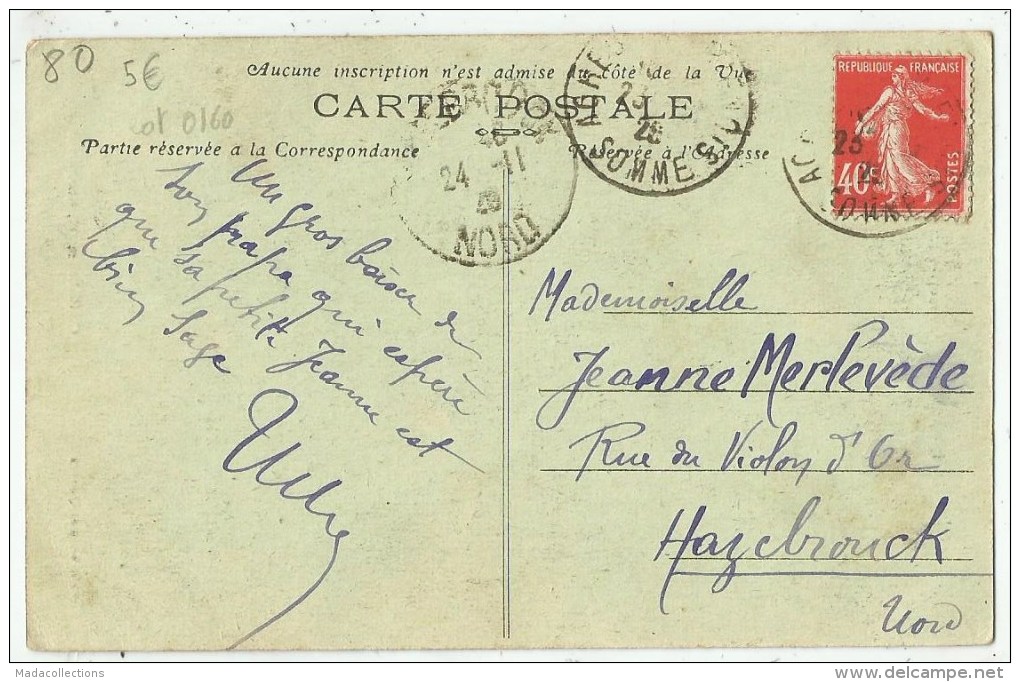 80
5€
cot 0160
Aucune inscription n'est admise du côté de la Vue
CARTE POSTALE
Partie réservée a la Correspondance
Réservée à l'Adresse
24 -11
NORD
SOMME
REPUBLIQUE FRANÇAISE
40c
POSTES
Un gros baiser de
ton papa qui espère
que sa petite Jeanne est
bien sage
Mademoiselle
Jeanne Merlevède
Rue du Violon d'Or
Hazebrouck
Nord
Madacollections
delcampe.net